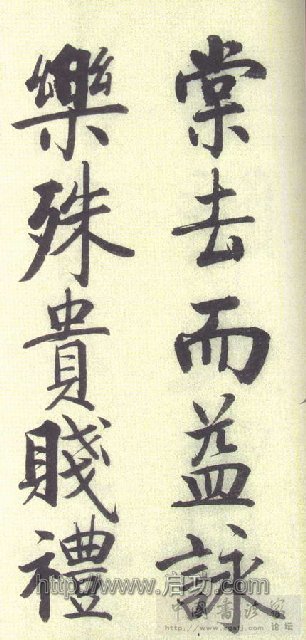 棠去而益詠
樂殊貴賤禮
http://www.启功.com
中國書法家
论坛